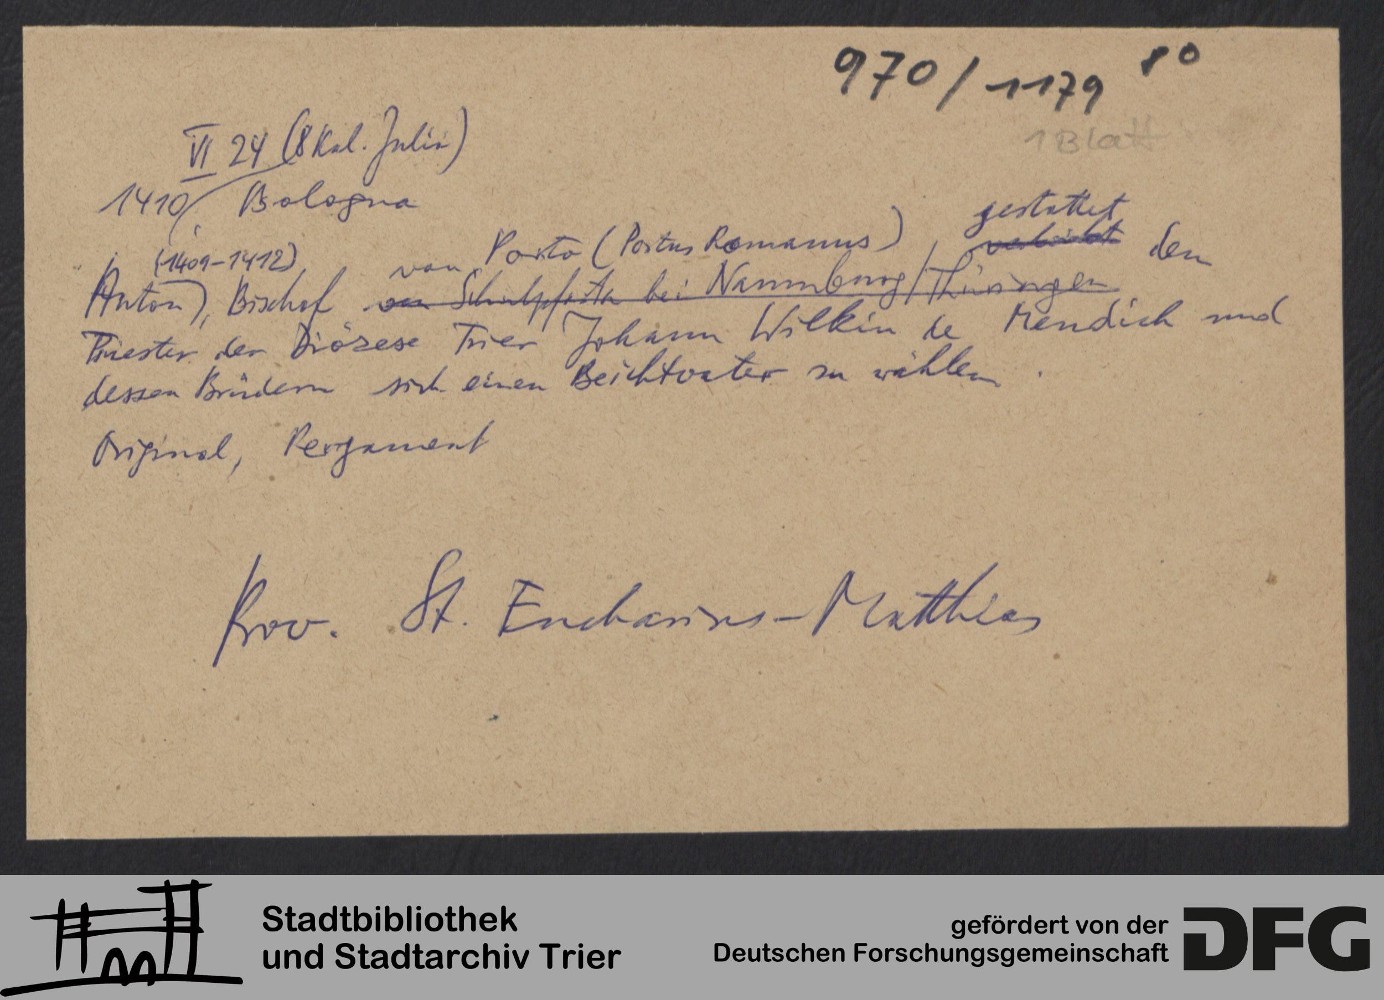 970/1179 8°
1 Blatt
VI 24 (8 Kal. Julii)
1410 Bologna
(1409-1412) von Porto (Portus Romanus) gestattet
Anton, Bischof von Schulpforta bei Naumburg/Thüringen den
Priester der Diözese Trier Johann Wilkin de Mendich und
dessen Brüdern sich einen Beichtvater zu wählen.
Original, Pergament
Prov. St. Eucharius-Matthias
Stadtbibliothek
und Stadtarchiv Trier
gefördert von der
Deutschen Forschungsgemeinschaft
DFG